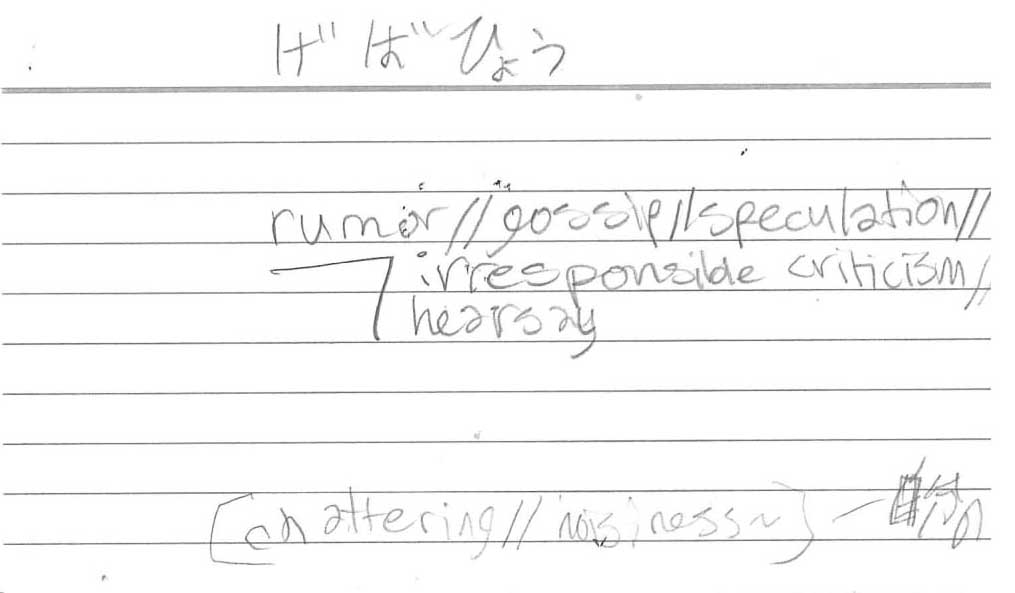 げばひょう
rumor//gossip//speculation//
irresponsible criticism//
hearsay
[chattering//noisiness~]—自分の